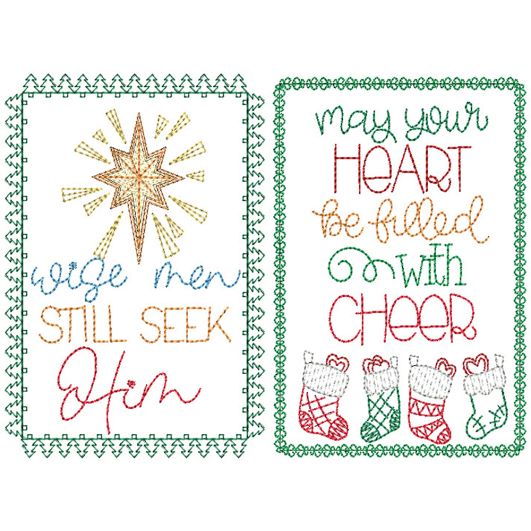 wise men
STILL SEEK
Him
may your
HEART
be filled
with
CHEER